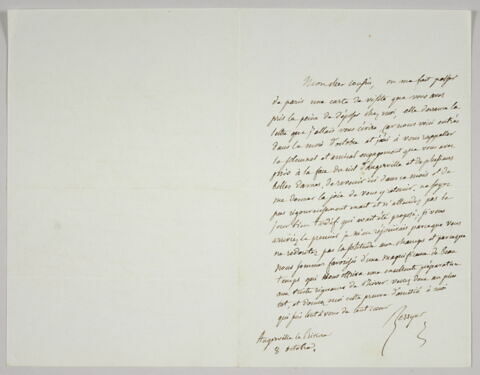 Mon cher cousin, on me fait passer
de paris une carte de visite que vous avez
pris la peine de déposer chez moi, elle devance la
lettre que j'allais vous écrire, car nous voici entrés
dans le mois d'octobre et j'ai à vous rappeller
le solennel et amical engagement que vous avez
pris à la face du ciel d'Augerville et de plusieurs
belles dames, de revenir ici dans ce mois et de
me donner la joie de vous y retenir. ne soyez
pas rigoureusement exact et n'attendez pas le
jour bien tardif qui avait été proposé; si vous
arriviez le premier je m'en réjouirais parceque vous
ne redoutez pas la solitude aux champs et parceque
nous sommes favorisés d'une magnificence de beau
temps qui vous offrira une excellente préparation
aux tristes rigueurs de l'hiver. venez donc au plus
tôt, et donnez moi cette preuve d'amitié à moi
qui suis tout à vous de tout coeur
Berryer
Augerville la Rivière
8 octobre.